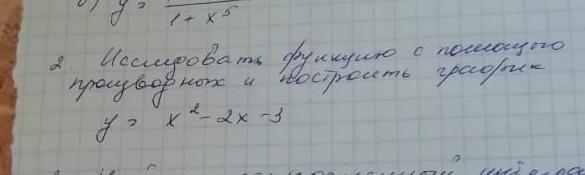 y =
1 + x⁵
2. Исследовать функцию с помощью
производных и построить график
y = x² - 2x - 3